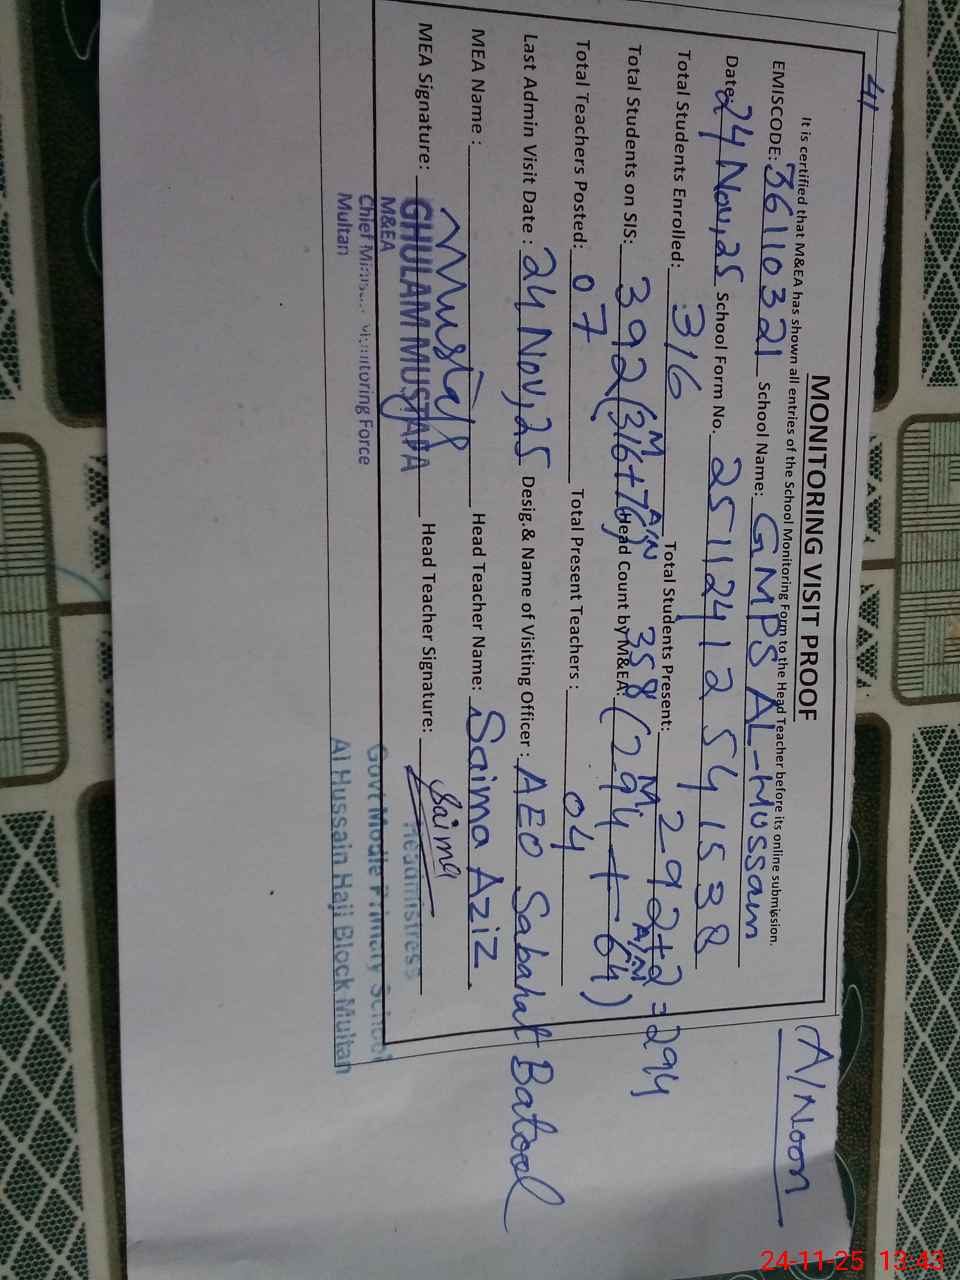 41
A/Noon
MONITORING VISIT PROOF
It is certified that M&EA has shown all entries of the School Monitoring Form to the Head Teacher before its online submission.
EMISCODE: 36110321 School Name: GMPS AL-Hussain
Date: 24 Nov, 25 School Form No. 251124125415 38
Total Students Enrolled: 316 Total Students Present: 292+2=294
M A/N M A/N
Total Students on SIS: 392 (316+76) Head Count by M&EA: 358 (294+64)
Total Teachers Posted: 07 Total Present Teachers: 04
Last Admin Visit Date: 24 Nov, 25 Desig.& Name of Visiting Officer: AEO Sabahat Batool
MEA Name: Head Teacher Name: Saima Aziz
MEA Signature: Head Teacher Signature: Saima
GHULAM MUSTAFA
M&EA
Chief Minister Monitoring Force
Multan
Headmistress
Govt Modle Primary School
Al Hussain Haji Block Multan
24-11-25 13:43